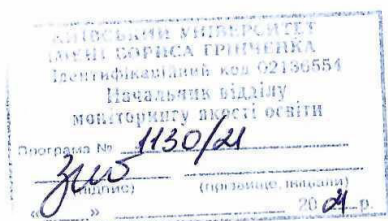 КИЇВСЬКИЙ УНІВЕРСИТЕТ
ІМЕНІ БОРИСА ГРІНЧЕНКА
Ідентифікаційний код 02136554
Начальник відділу
моніторингу якості освіти
Програма № 1130/21
(підпис) (прізвище, ініціали)
« » 2021 р.